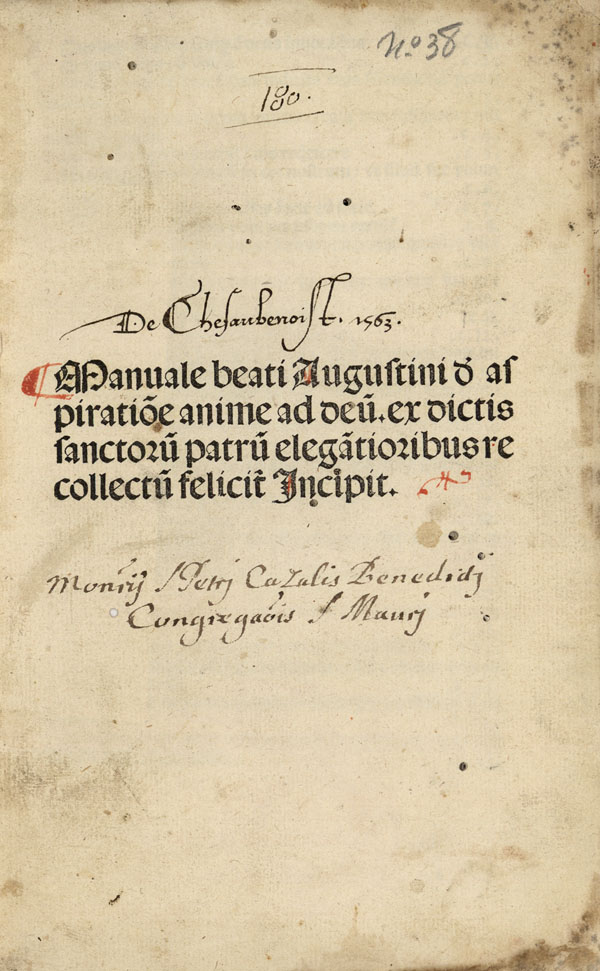 No. 38
De Chesaubenoist. 1563.
Manuale beati Augustini đ as
piratiōe anime ad deū. ex dictis
sanctorū patrū elegātioribus re
collectū felicit̄ Incipit.
Mon̄rij S Petrj Cazalis Benedictj
Congregaōis S Maurj